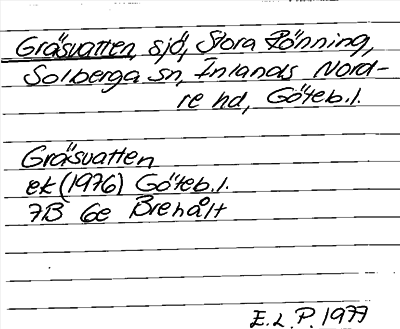 Gräsvatten, sjö, Stora Rönning,
Solberga sn, Inlands Nord-
re hd, Göteb.l.
Gräsvatten
ek (1976) Göteb.l.
7B 6e Brehålt
E.L.P. 1977